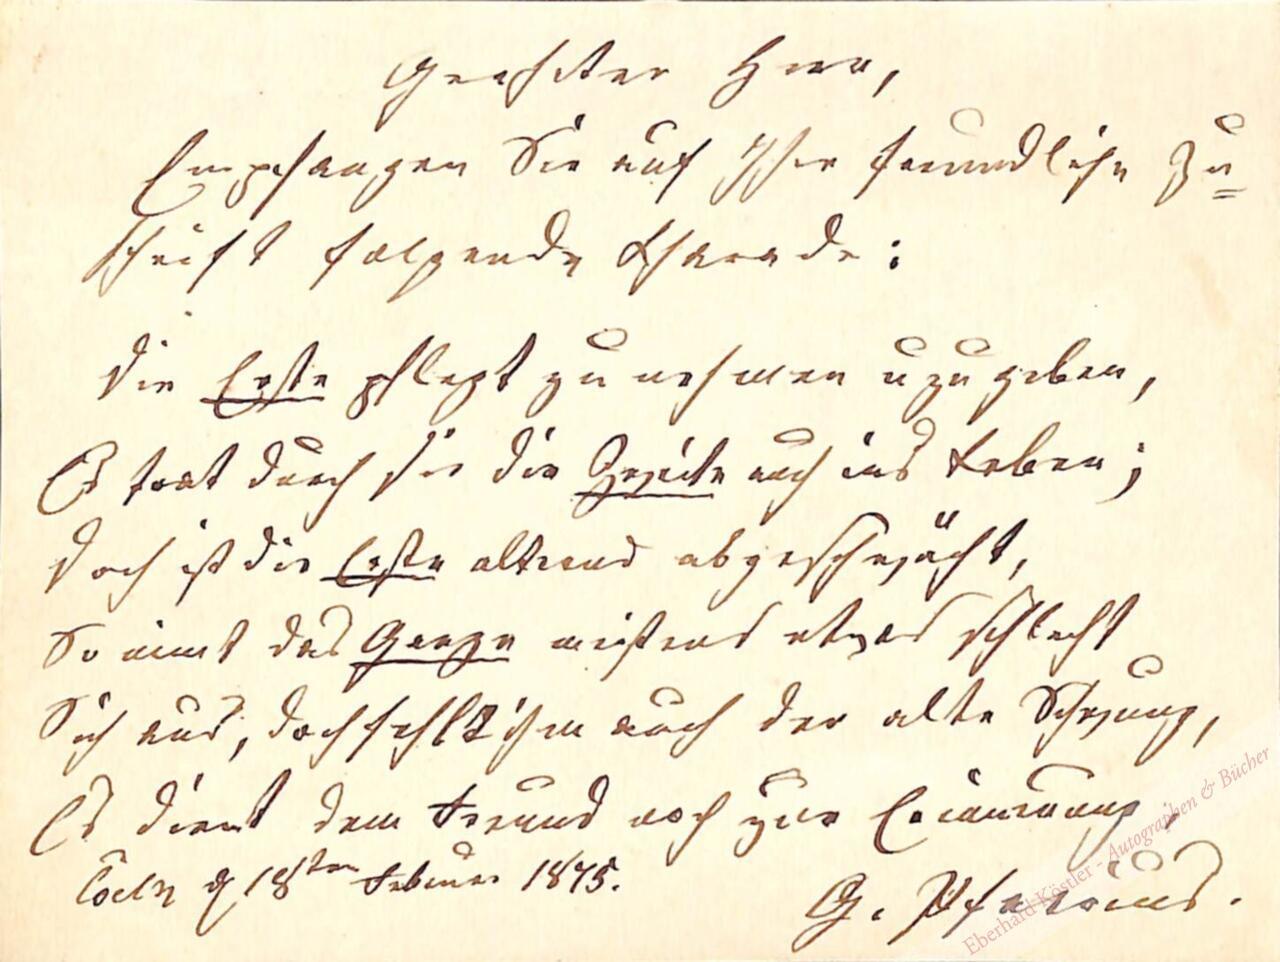 Geehrter Herr,
Empfangen Sie auf Ihre freundliche Zu=
schrift folgende Charade:
Die Erste pflegt zu nehmen u zu geben,
Es trat durch sie die Zweite auch ins Leben;
Doch ist die Erste alternd abgeschwächt,
So nimt das Ganze meistens etwas schlecht
Sich aus, doch fehlt ihm auch der alte Schwung,
Es dient dem Freund noch zur Erinnerung
Coeln d 18ten Februar 1875.
G. Pfarrius.
Eberhard Köstler - Autographen & Bücher